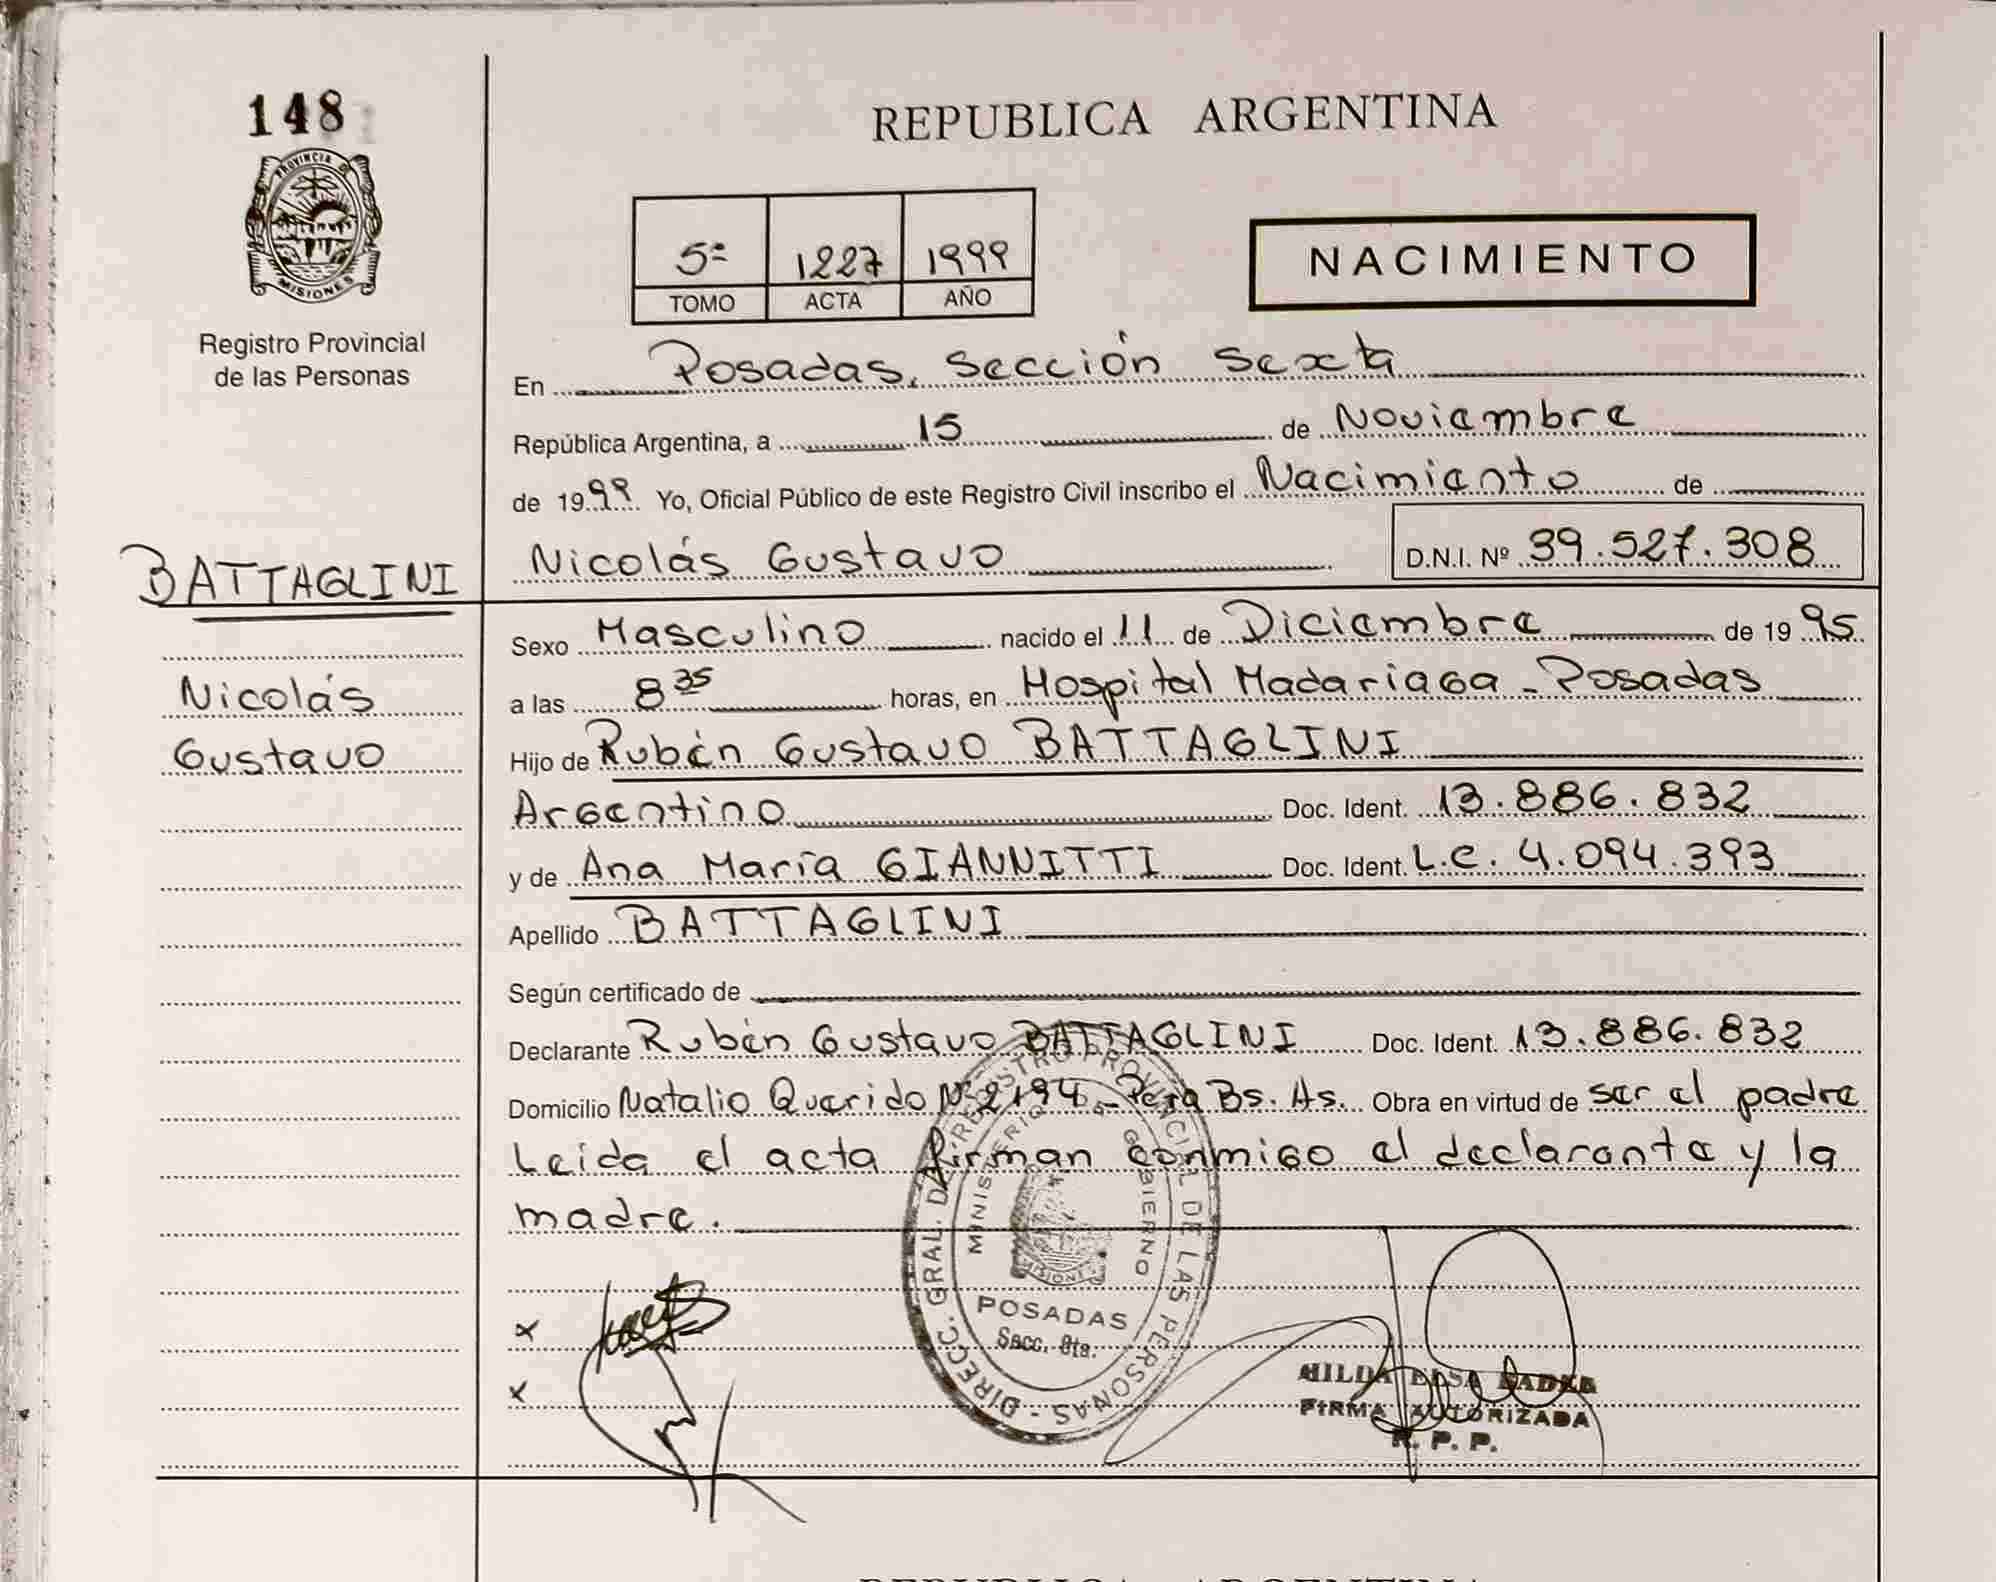 148
PROVINCIA DE
MISIONES
Registro Provincial
de las Personas
REPUBLICA ARGENTINA
5º 1227 1999
TOMO ACTA AÑO
NACIMIENTO
En Posadas, Sección Sexta
República Argentina, a 15 de Noviembre
de 1999 Yo, Oficial Público de este Registro Civil inscribo el Nacimiento de
Nicolás Gustavo D.N.I. Nº 39.527.308
BATTAGLINI
Nicolás
Gustavo
Sexo Masculino nacido el 11 de Diciembre de 1995
a las 8 35 horas, en Hospital Madariaga - Posadas
Hijo de Rubén Gustavo BATTAGLINI
Argentino Doc. Ident. 13.886.832
y de Ana María GIANNITTI Doc. Ident. L.C. 4.094.393
Apellido BATTAGLINI
Según certificado de
Declarante Rubén Gustavo BATTAGLINI Doc. Ident. 13.886.832
Domicilio Natalio Querido Nº 2194 - Bs. As. Obra en virtud de ser el padre
Leida el acta firman conmigo el declarante y la
madre.
x
x
DIRECC. GRAL. DE REGISTRO PROVINCIAL DE LAS PERSONAS -
MINISTERIO DE GOBIERNO
MISIONES
POSADAS
Secc. 6ta.
HILDA ELSA
FIRMA AUTORIZADA
R. P. P.
REPUBLICA ARGENTINA